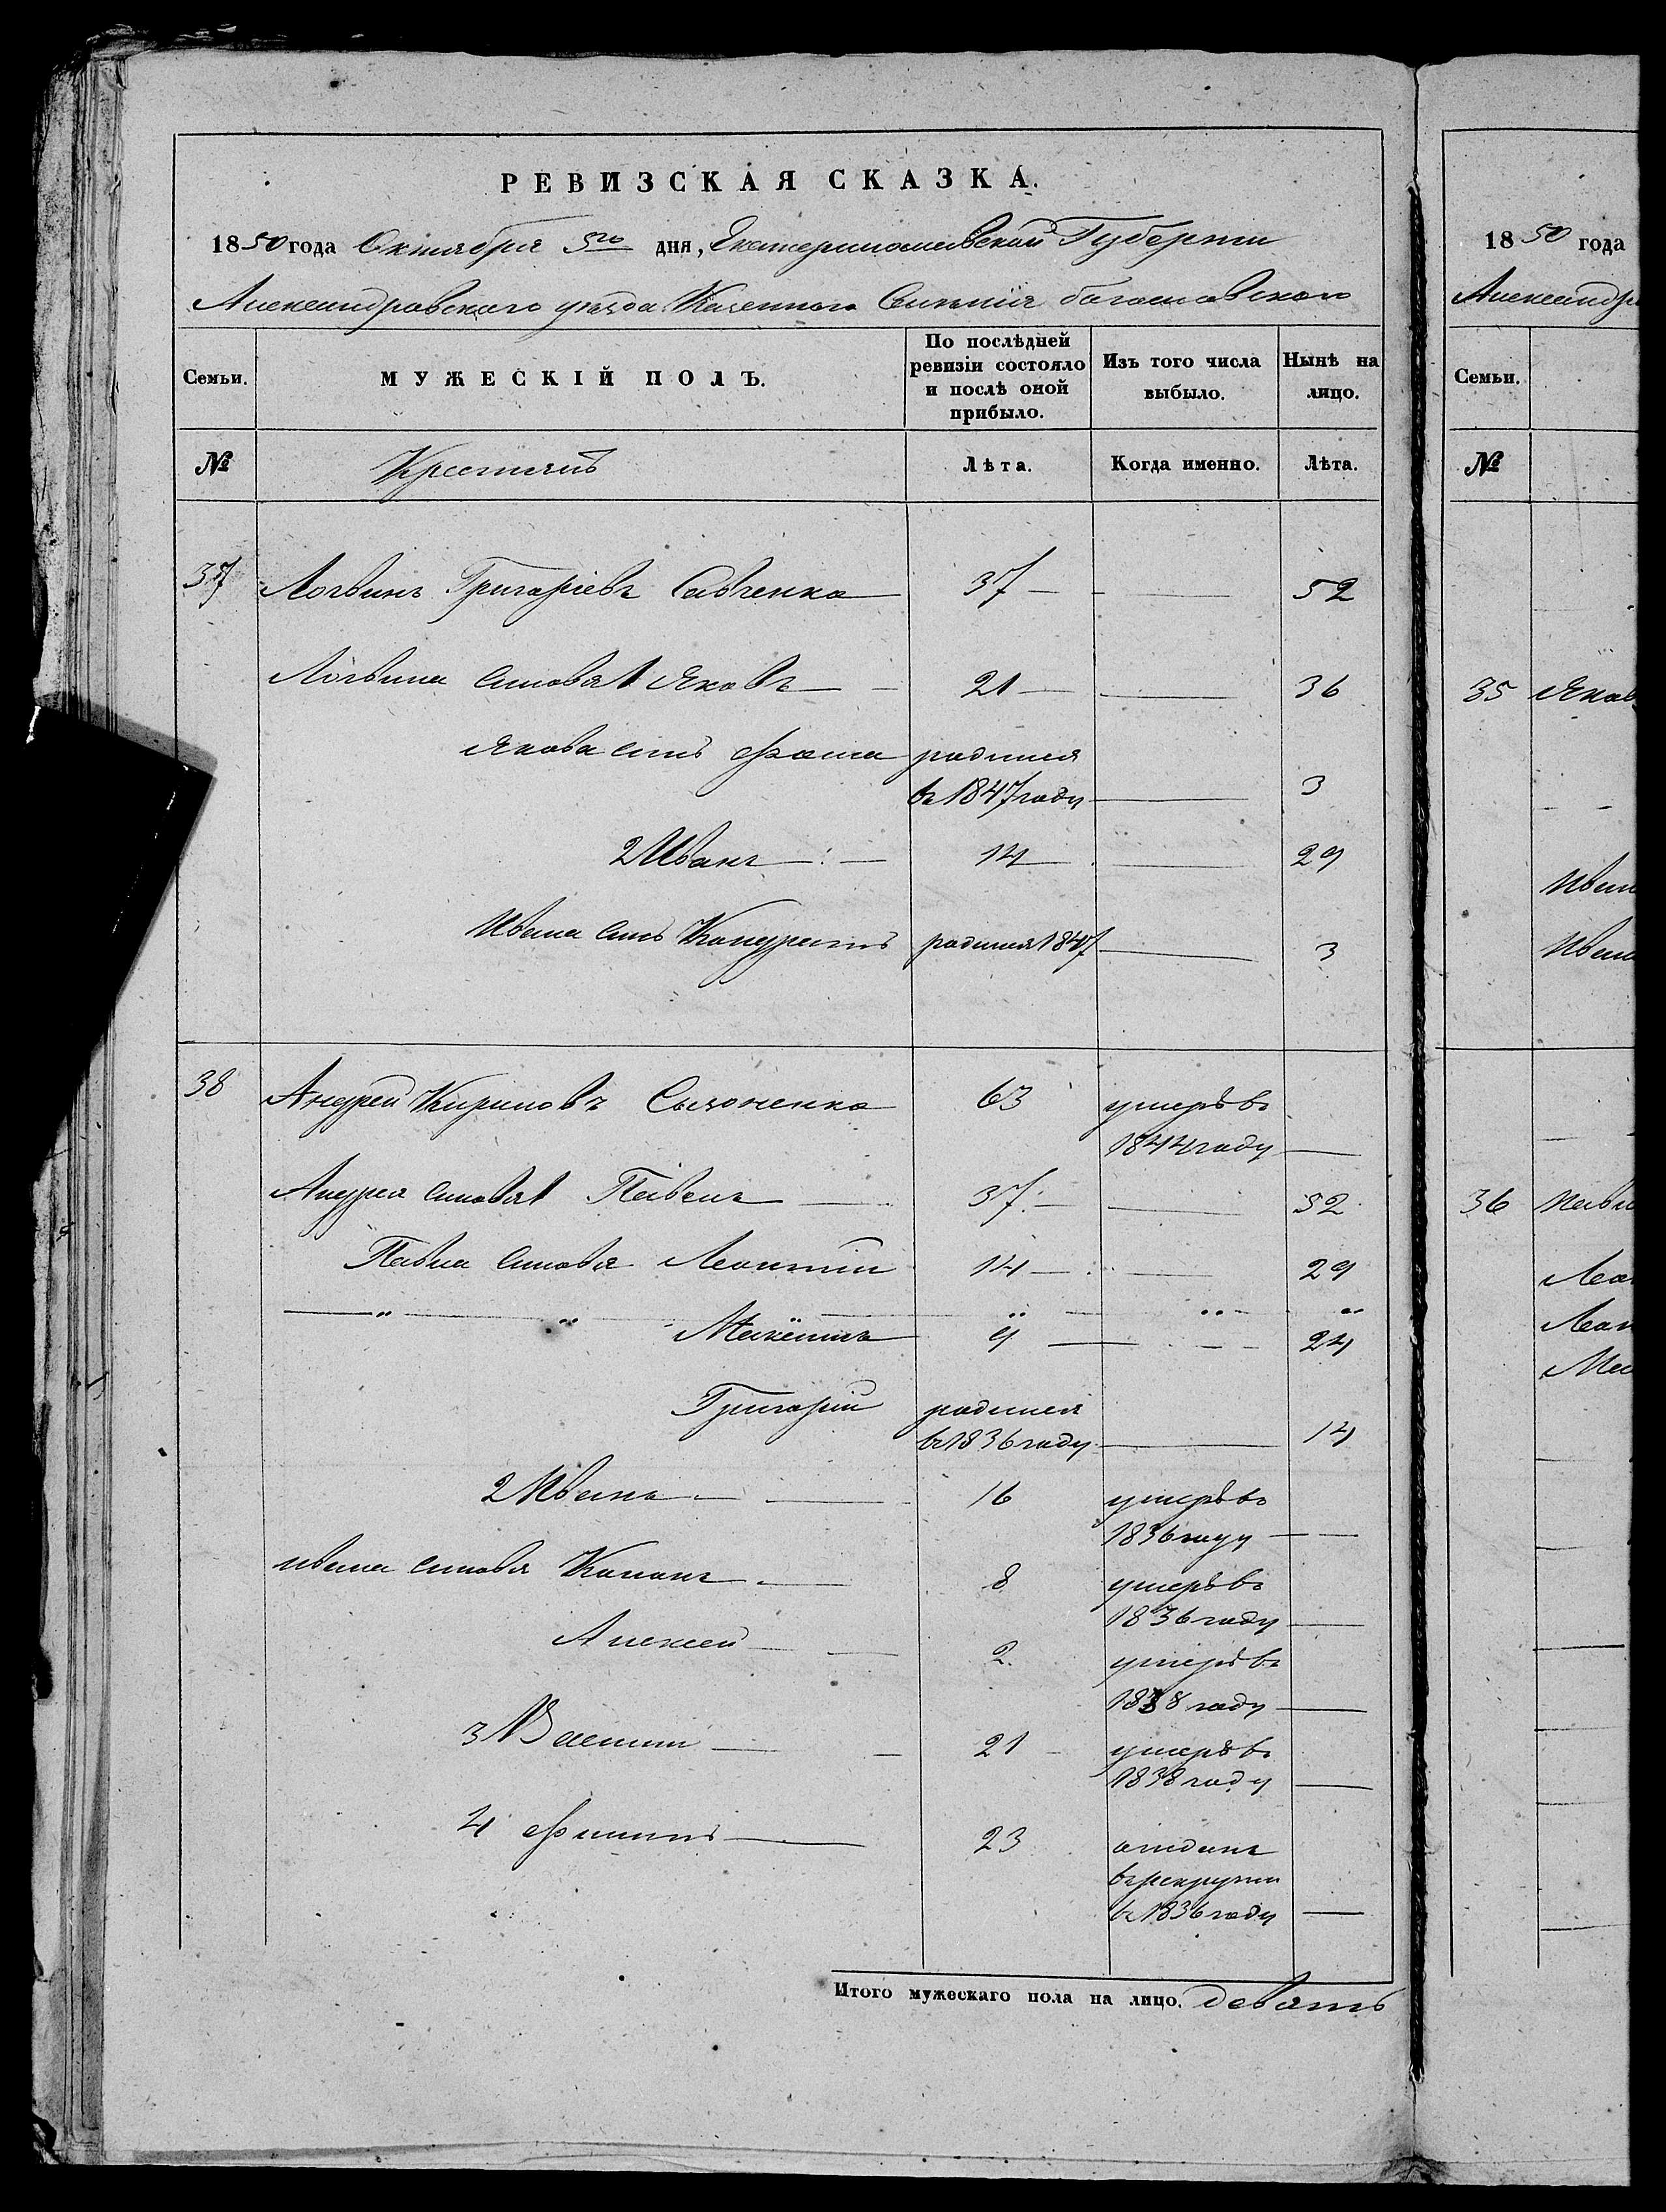 РЕВИЗСКАЯ СКАЗКА.
1850 года Октября 5го дня, Екатеринославской Губернии
Александровского уезда Казенного Селения
Семьи. МУЖЕСКІЙ ПОЛЪ. По послѣдней ревизіи состояло и послѣ оной прибыло. Изъ того числа выбыло. Нынѣ на лицо.
№ Крестьянъ Лѣта. Когда именно. Лѣта.
37 Логвинъ Григоріевъ Савченко 37 — — 52
Логвина синовя 1 Яковъ — 21 — — 36
Якова синъ Фома родился
въ 1847 году — 3
2 Иванъ — 14 — 29
Ивана синъ Кондратъ родился 1847 — 3
38 Андрей Кириловъ 63 умеръ въ
1844 году —
Андрея синовя 1 Павелъ — 37 — — 52
Павла синовя Леонтій 14 — — 29
— " " " " "
9 — 24
Григорій родился
въ 1836 году — 14
2 Иванъ — 16 умеръ въ
1836 году —
ивана синовя Кононъ — 8 умеръ въ
1836 году —
Алексей — 2 умеръ въ
1838 году —
3 Василий — 21 умеръ въ
1838 году —
4 Филипъ — 23 отданъ
въ рекруты
в 1836 году —
Итого мужескаго пола на лицо. девять
1850 года
Александр
Семьи.
№
35 Яков
Иван
Иван
36 Павл
Лео
Леон
Ма